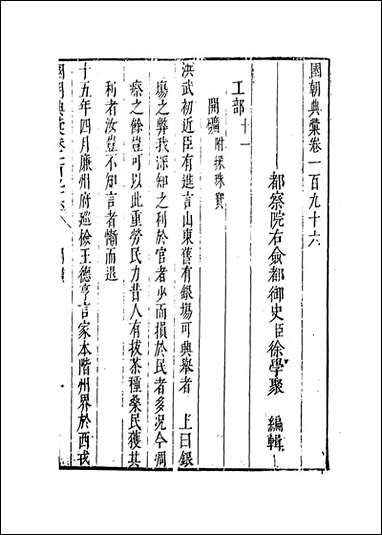 國朝典彙卷一百九十六
都察院右僉都御史臣徐學聚 編輯
工部十一
開礦 附採珠寶
洪武初近臣有進言山東舊有銀場可興舉者 上曰銀
場之弊我深知之利於官者少而損於民者多況今凋
瘵之餘豈可以此重勞民力昔人有拔茶種桑民獲其
利者汝豈不知言者慚而退
十五年四月廉州府巡檢王德亨言家本階州界於西戎
國朝典彙卷一百九十六